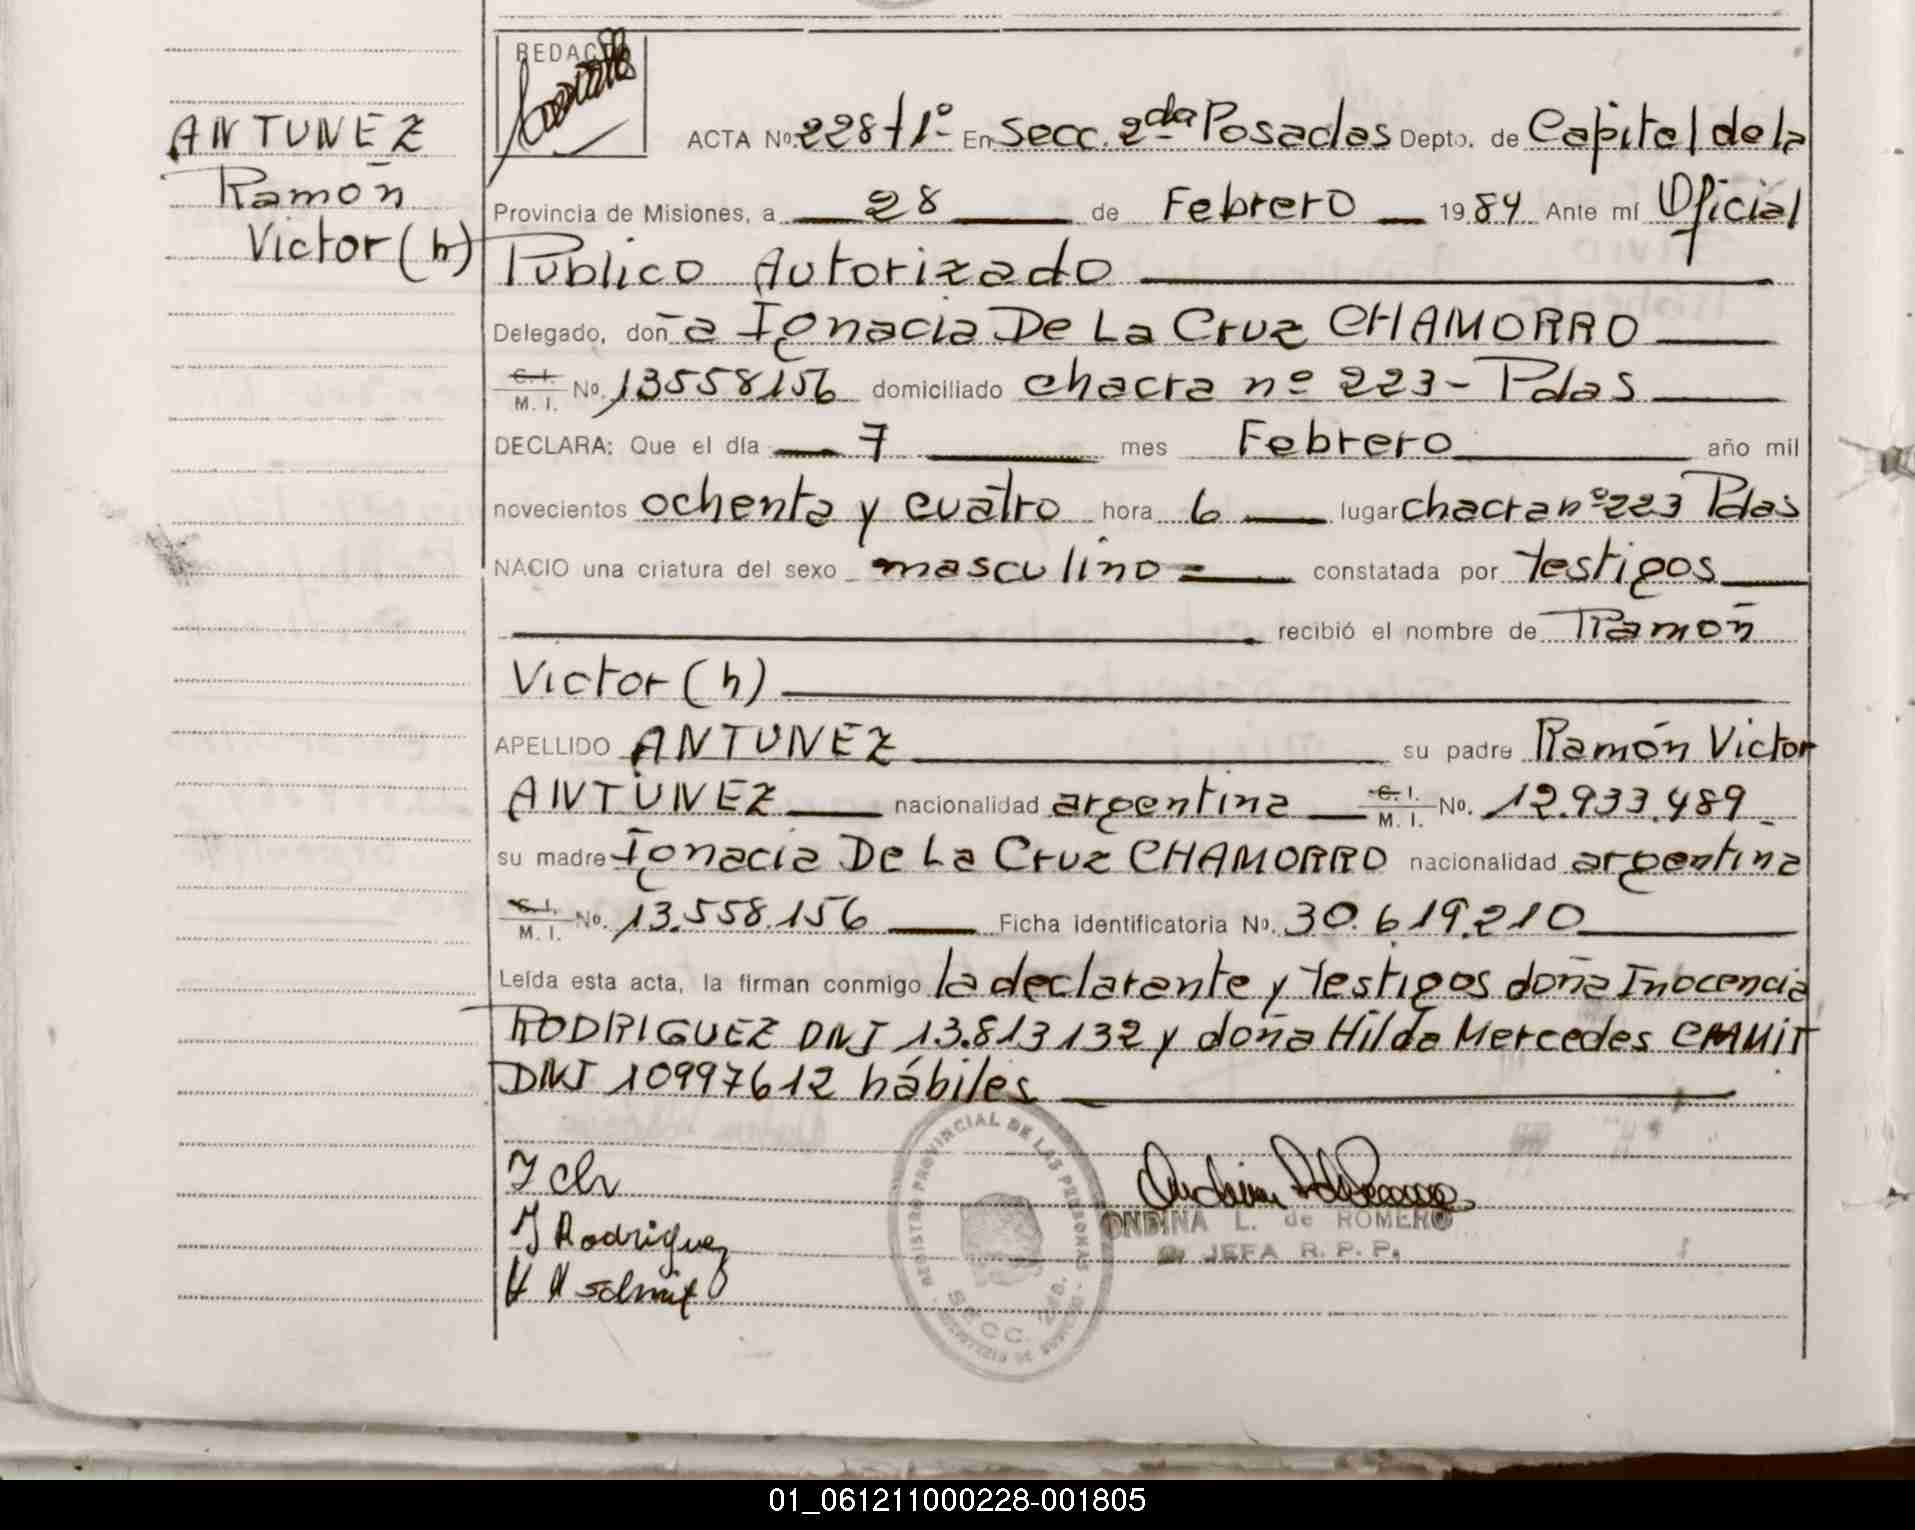 REDACTO
ANTUNEZ
Ramón
Victor (h)
ACTA Nº. 228-T1º- En Secc. 2da Posadas Depto. de Capital de la
Provincia de Misiones, a 28 de Febrero 1984 Ante mí Oficial
Público Autorizado
Delegado, don a Ignacia De La Cruz CHAMORRO
C. I. M. I. Nº. 13558156 domiciliado chacra nº 223 - Pdas
DECLARA: Que el día 7 mes Febrero año mil
novecientos ochenta y cuatro hora 6 lugar chacra nº 223 Pdas
NACIO una criatura del sexo masculino = constatada por testigos
recibió el nombre de Ramón
Victor (h)
APELLIDO ANTUNEZ su padre Ramón Victor
ANTUNEZ nacionalidad argentina C. I. M. I. Nº. 12.933.489
su madre Ignacia De La Cruz CHAMORRO nacionalidad argentina
C. I. M. I. Nº. 13.558.156 Ficha identificatoria Nº. 30.619.210
Leída esta acta, la firman conmigo la declarante y testigos doña Inocencia
RODRIGUEZ DNI 13.813132 y doña Hilda Mercedes
DNI 10997612 hábiles
I Ch
I Rodriguez
H M schmit
REGISTRO PROVINCIAL DE LAS PERSONAS
SECC. 2da.
ONDINA L. de ROMERO
JEFA R. P. P.
01_061211000228-001805